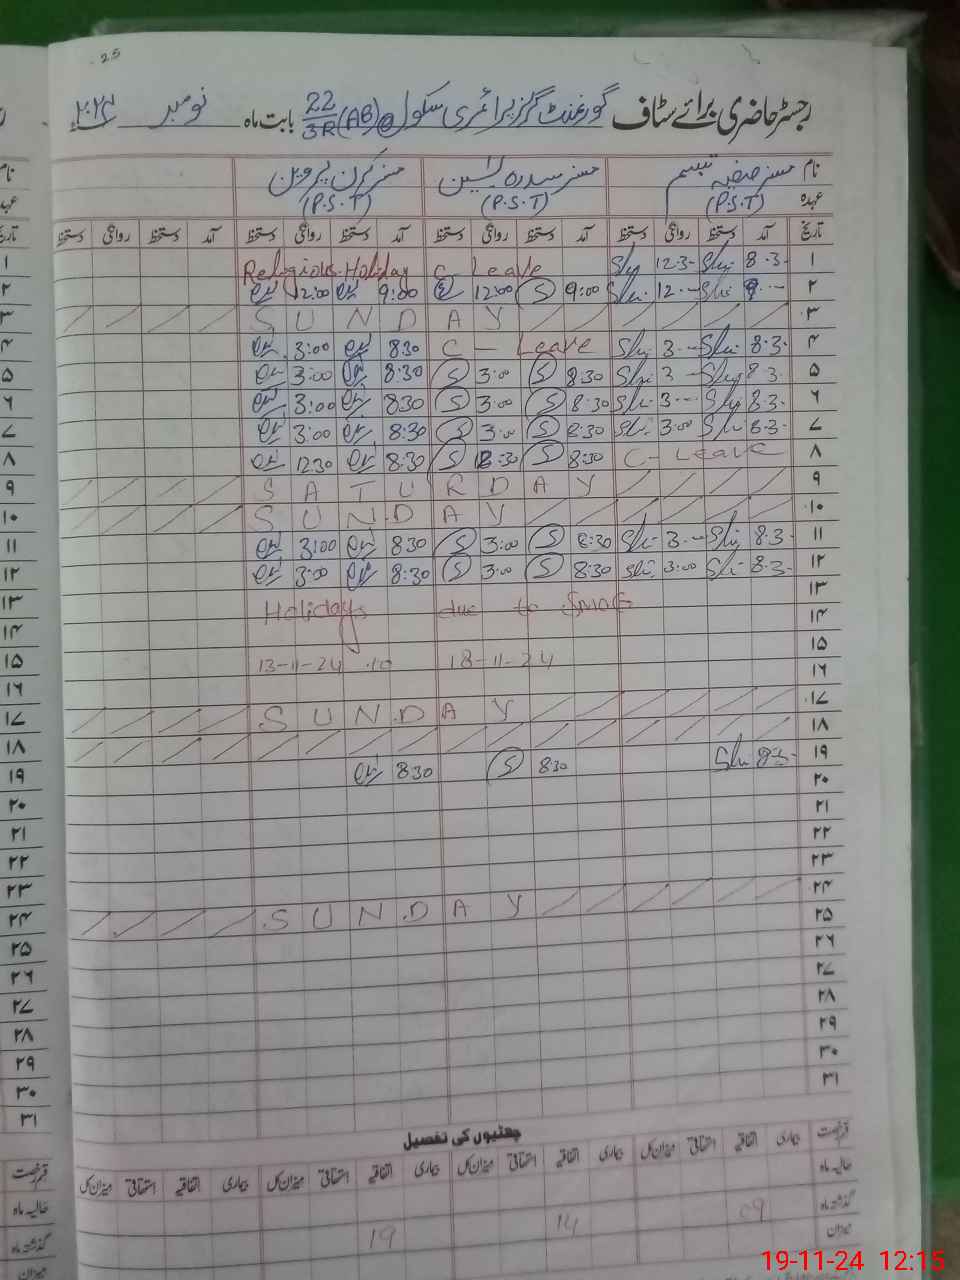 25
رجسٹر حاضری برائے سٹاف گورنمنٹ گرلز پرائمری سکول 22/3R (AB) بابت ماہ نومبر ۲۰۲۴ء
نام مسز صفیہ تبسم مسز سدرہ یٰسین مسز کرن پروین
عہدہ (P.S.T) (P.S.T) (P.S.T)
تاریخ آمد دستخط روانگی دستخط آمد دستخط روانگی دستخط آمد دستخط روانگی دستخط آمد دستخط روانگی دستخط
۱ 8.3- 12.3- C Leave Religious Holiday
۲ 9:00 12:00 9:00 12:00
۳ S U N D A Y
۴ 8.3- 3-- C - Leave 8:30 3:00
۵ 8.3- 3- 8:30 S 3:00 S 8:30 3:00
۶ 8.3- 3-- 8:30 S 3:00 S 8:30 3:00
۷ 8.3- 3:00 8:30 S 3:00 S 8:30 3:00
۸ C - Leave 8:30 S S 8:30 12:30
۹ S A T U R D A Y
۱۰ S U N D A Y
۱۱ 8.3- 3-- 8:30 S 3:00 S 8:30 3:00
۱۲ 8.3- 3:00 8:30 S 3:00 S 8:30 3:00
۱۳ Holidays due to SMOG
۱۴
۱۵ 13-11-24 to 18-11-24
۱۶
۱۷ S U N D A Y
۱۸
۱۹ 8:3- S 8:30 8:30
۲۰
۲۱
۲۲
۲۳
۲۴ S U N D A Y
۲۵
۲۶
۲۷
۲۸
۲۹
۳۰
۳۱
چھٹیوں کی تفصیل
قسم رخصت بیماری اتفاقیہ استحقاقی میزان کل بیماری اتفاقیہ استحقاقی میزان کل بیماری اتفاقیہ استحقاقی میزان کل
حالیہ ماہ
گذشتہ ماہ 09 14 19
میزان
19-11-24 12:15